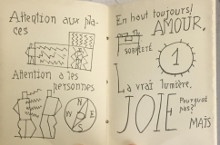 Attention aux pla-
ces
Attention à les
personnes
En haut toujours!
AMOUR,
La
SOBRIÉTÉ
1
La vrai lumière,
JOIE
Pourquoi
pas?
MAÏS